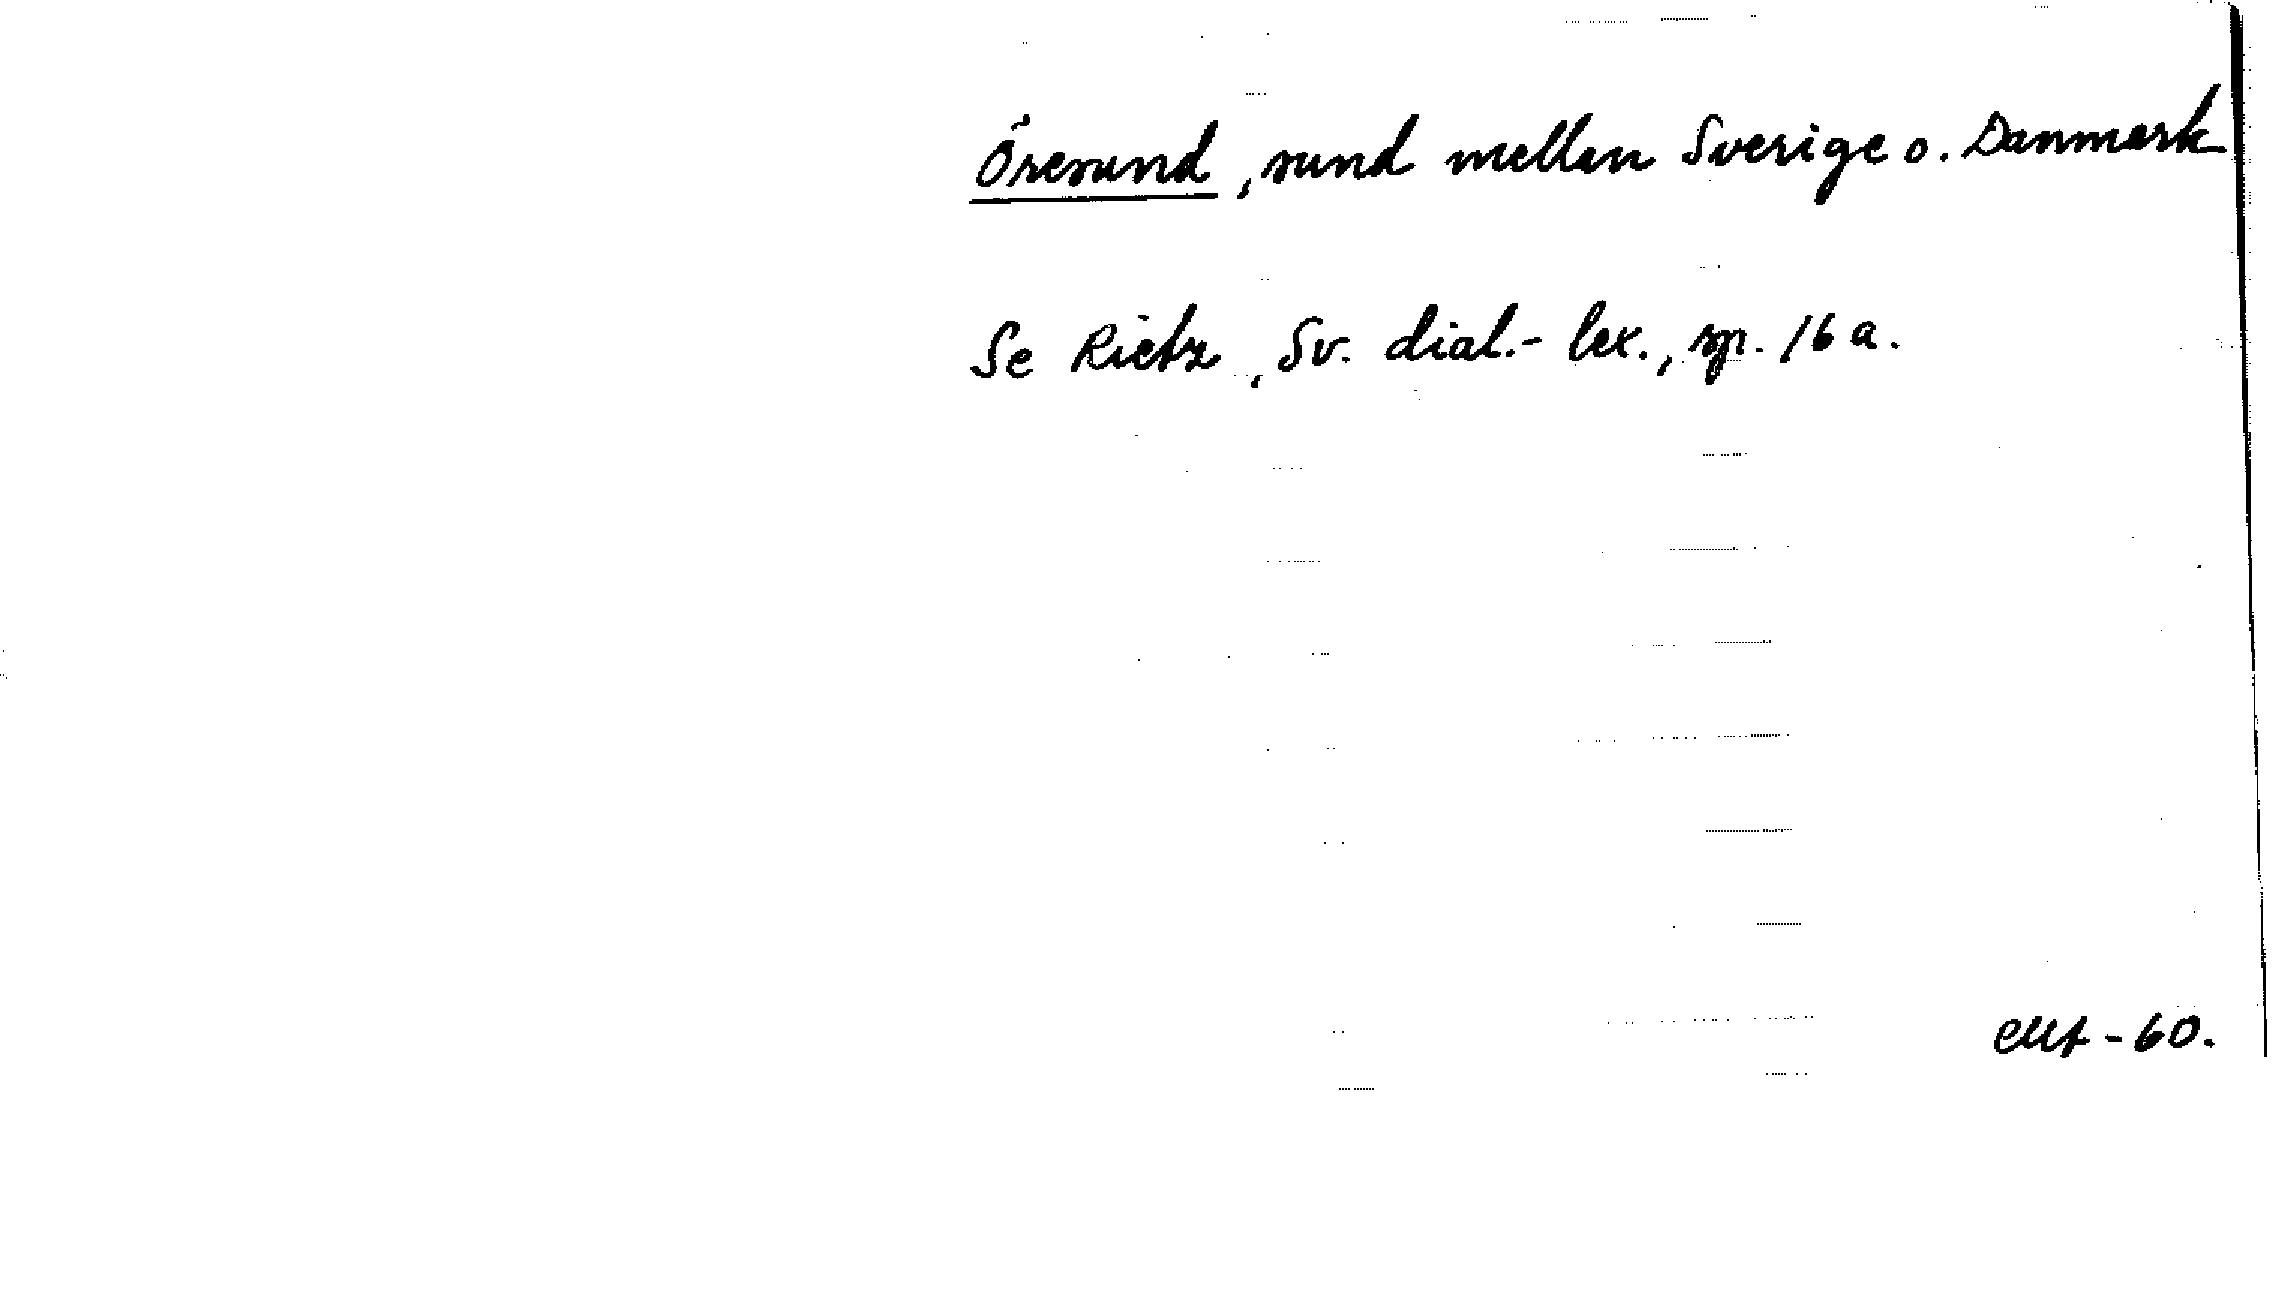 Öresund, sund mellan Sverige o. Danmark
Se Rietz, Sv. dial.-lex., sp. 16 a.
-60.